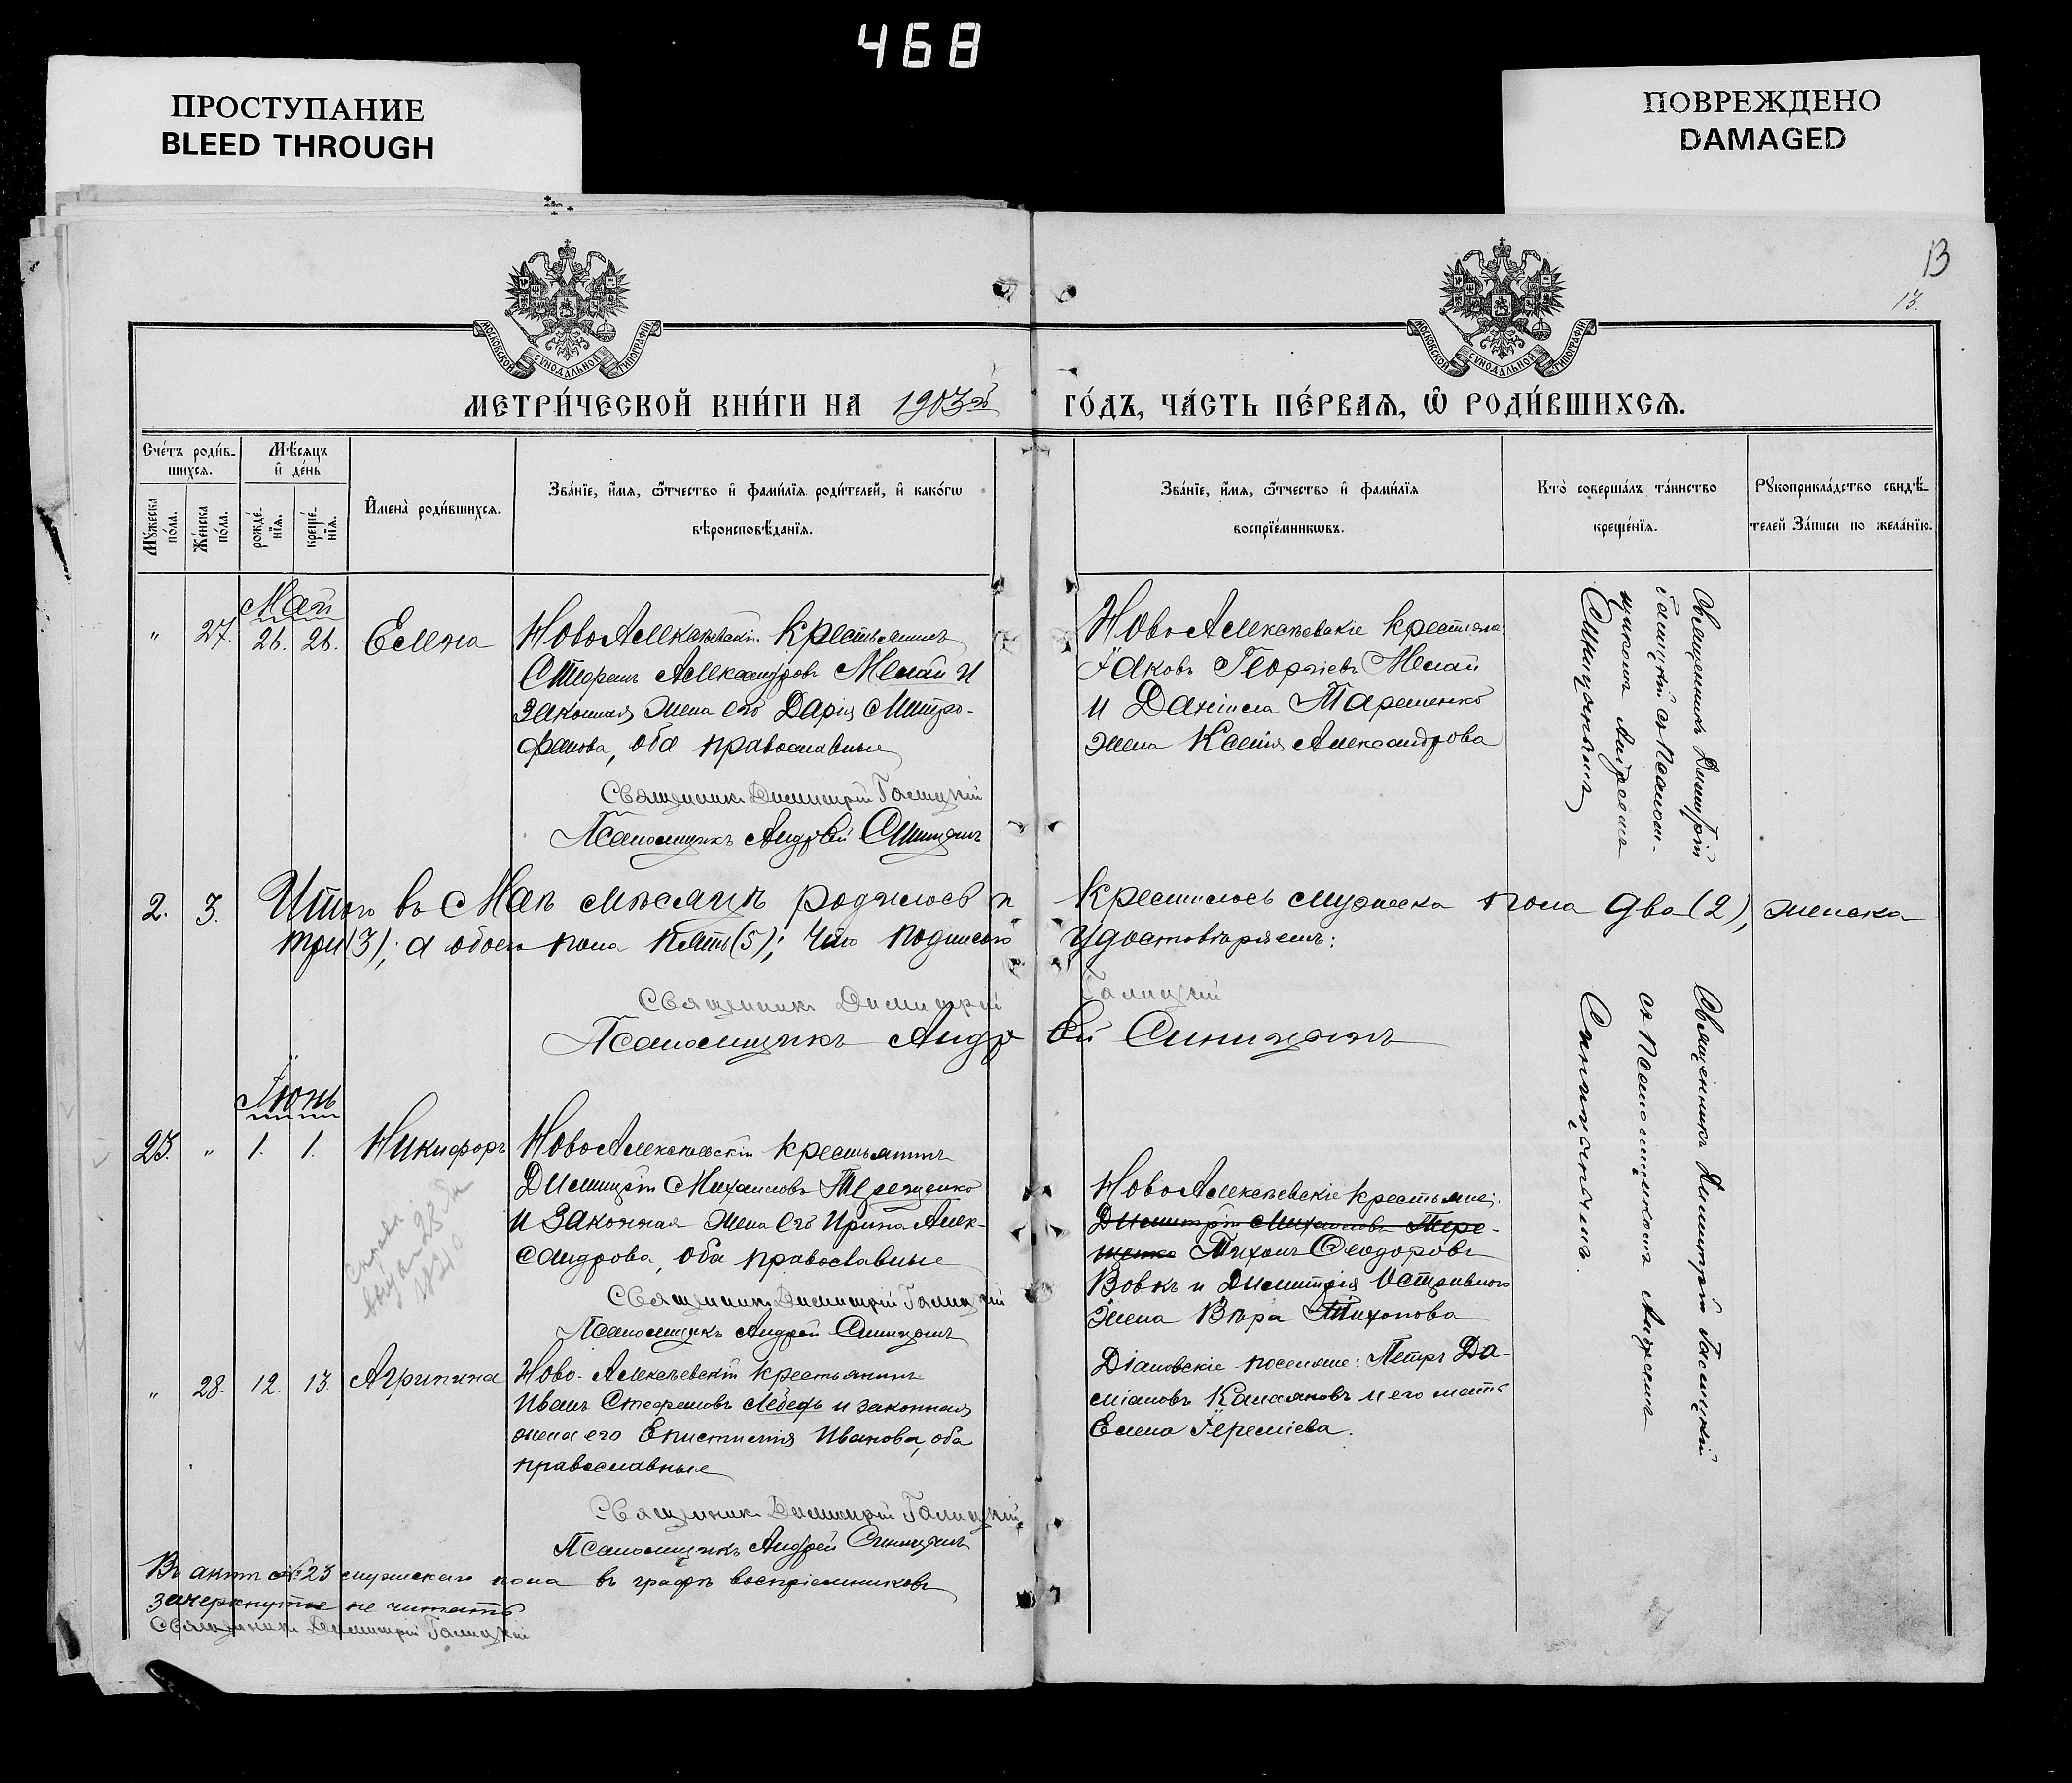 468
ПРОСТУПАНИЕ
BLEED THROUGH
ПОВРЕЖДЕНО
DAMAGED
13
13.
МОСКОВСКОЙ СѴНОДАЛЬНОЙ ТИПОГРАФІИ
МОСКОВСКОЙ СѴНОДАЛЬНОЙ ТИПОГРАФІИ
МЕТРИ́ЧЕСКОЙ КНИ́ГИ НА 1903й ГО́ДЪ, ЧА́СТЬ ПЕ́РВАѦ, Ѡ РОДИ́ВШИХСѦ.
Сче́тъ роди́в-
шихсѧ.
Мѣ́сѧцъ
и де́нь
Мꙋ́жеска
по́ла.
Же́нска
по́ла.
рожде́-
нїѧ.
креще́-
нїѧ.
Имена̀ роди́вшихсѧ.
Зва́нїе, и́мѧ, ѻ́тчество и фами́лїѧ роди́телей, и како́гѡ
вѣроисповѣ́данїѧ.
Зва́нїе, и́мѧ, ѻ́тчество и фами́лїѧ
воспрїе́мникѡвъ.
Кто̀ соверша́лъ та́инство
креще́нїѧ.
Рꙋкоприкла́дство свидѣ́-
телей За́писи по жела́нїю.
Май
" 27. 26. 26. Елена
НовоАлексѣевскій крестьянинъ
Стефанъ Александровъ Мелай и
законная жена его Дарія Митро-
фанова, оба православные
Священникъ Димитрій Галицкій
Псаломщикъ Андрей Синицынъ
НовоАлексѣевскіе крестьяне
Іаковъ Георгіевъ Мелай
и Даніила Тарашенко
жена Ксенія Александрова
Священникъ Димитрій
Галицкій съ Псалом-
щикомъ Андреемъ
Синицынымъ
2. 3. Итого въ Маѣ мѣсяцѣ родилось и крестилось мужеска пола два (2), женска
три (3), а обоего пола пять (5); что подписью удостовѣряемъ:
Священникъ Димитрій Галицкій
Псаломщикъ Андрей Синицынъ
Іюнь
23. " 1. 1. Никифоръ
НовоАлексѣевскій крестьянинъ
Димитрій Михаиловъ Терещенко
и законная жена его Ирина Алек-
сандрова, оба православные
Священникъ Димитрій Галицкій
Псаломщикъ Андрей Синицынъ
НовоАлексѣевскіе крестьяне:
Димитрій Михаиловъ Тере-
щенко Тихонъ Ѳеодоровъ
Вовкъ и Димитрія Остривного
жена Вѣра Тихонова
Священникъ Димитрій Галицкій
съ Псаломщикомъ Андреемъ
Синицынымъ.
" 28. 12. 13. Агрипина
Ново-Алексѣевскій крестьянинъ
Иванъ Стефановъ Лебедь и законная
жена его Епистимія Иванова, оба
православные
Священникъ Димитрій Галицкій
Псаломщикъ Андрей Синицынъ
Діановскіе поселяне: Петръ Да-
міановъ Каналновъ и его мать
Елена Іереміева.
Въ актѣ №23 мужскаго пола въ графѣ воспріемниковъ
зачеркнутое не читать
Священникъ Димитрій Галицкій